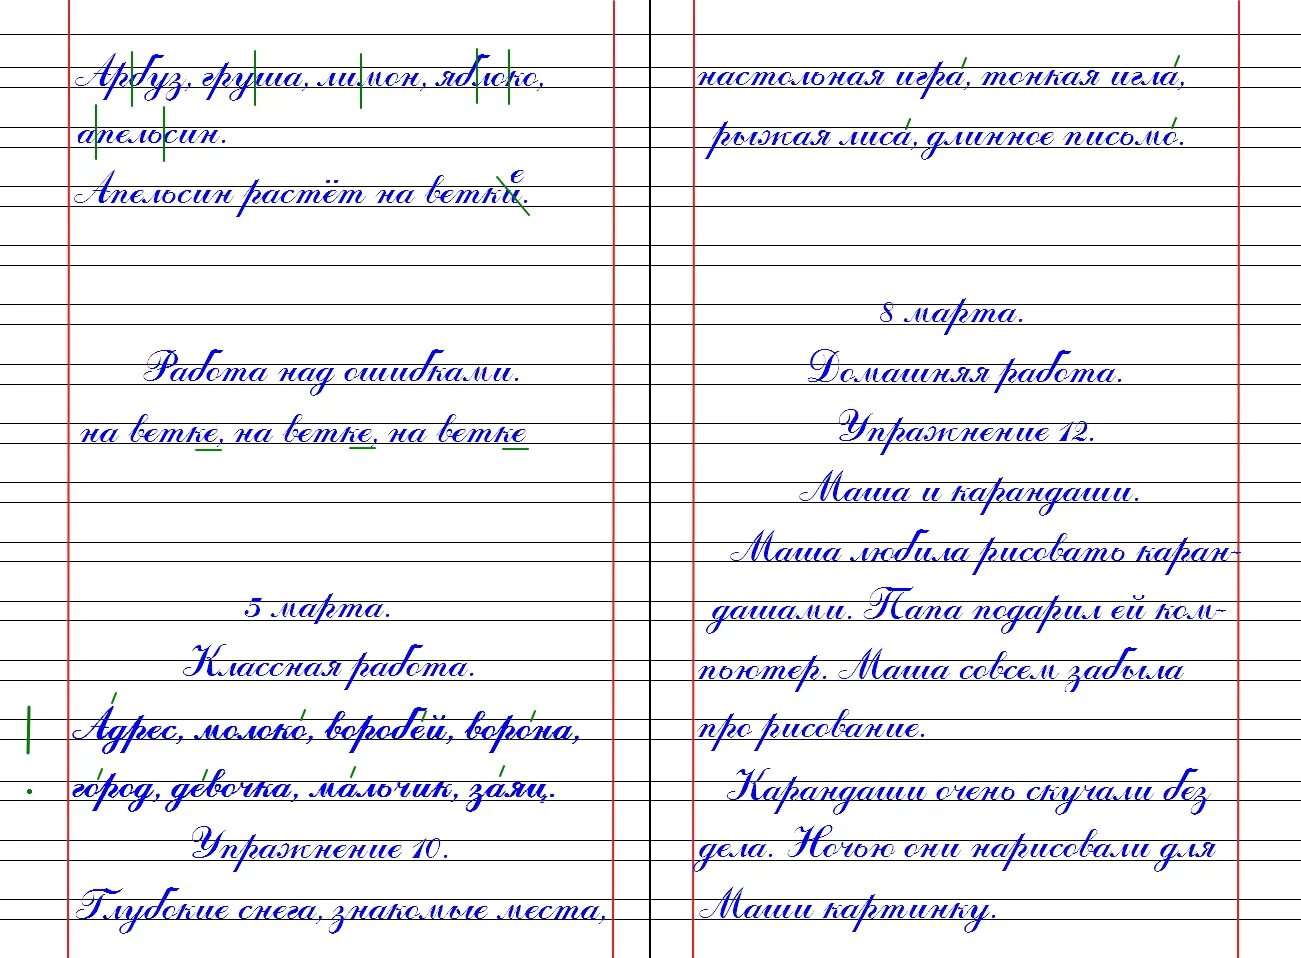 Арбуз, груша, лимон, яблоко,
апельсин.
е
Апельсин растёт на ветки.
Работа над ошибками.
на ветке, на ветке, на ветке
5 марта.
Классная работа.
А́дрес, молоко́, воробе́й, воро́на,
го́род, де́вочка, ма́льчик, за́яц.
Упражнение 10.
Глубокие снега, знакомые места,
настольная игра́, тонкая игла́,
рыжая лиса́, длинное письмо́.
8 марта.
Домашняя работа.
Упражнение 12.
Маша и карандаши.
Маша любила рисовать каран-
дашами. Папа подарил ей ком-
пьютер. Маша совсем забыла
про рисование.
Карандаши очень скучали без
дела. Ночью они нарисовали для
Маши картинку.